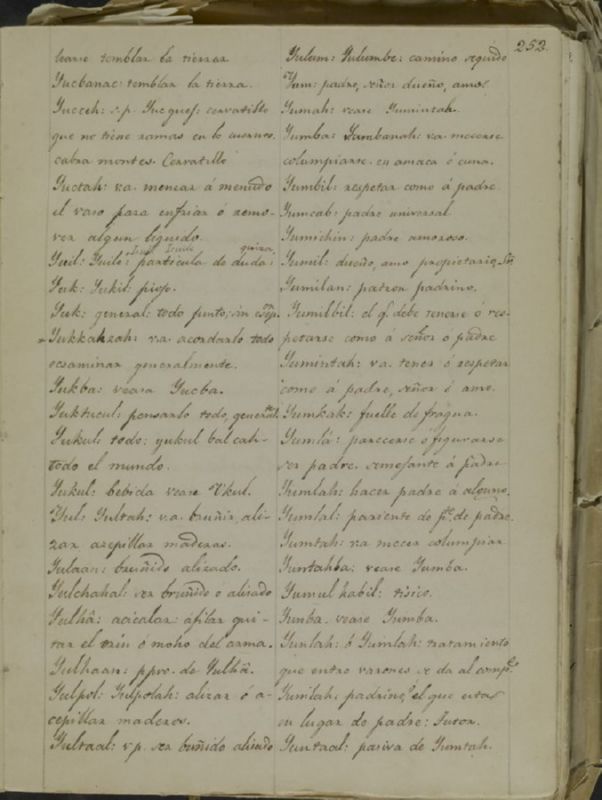 252.
learse temblar la tierra
Yucbanac: temblar la tierra.
Yucceh: s.p. Yucques: cervatillo
que no tiene ramas en lo cuernos.
cabra montes. Cervatillo
Yuctah: va. menear á menudo
el vaso para enfriar ó remo-
ver algun liquido.
quiza,
Yuil: Yuile: particula de duda:
Yuk: Yukil: piojo.
Yuk: general: todo punto; sin
Yukkahzah: va. acordarlo todo
ecsaminar generalmente.
Yukba: vease Yucba.
Yuktucul: pensarlo todo, general.te
Yukul: todo: yukul bal cah-
todo el mundo.
Yukul: bebida vease Ukul.
Yul: Yultah: va. bruñir ali-
zar acepillar maderas.
Yulaan: bruñido alizado.
Yulchahal: ser bruñido o alisado
Yulhâ: acicalar: afilar qui-
tar el ó moho del arma.
Yulhaan: ppro. de Yulhâ.
Yulpol: Yulpolah: alizar ó a-
cepillar maderos.
Yultaal: v.p. ser bruñido alisado
Yulum: Yulumbe: camino seguido
Yum: padre, señor dueño, amo:
Yumah: vease Yumintah.
Yumba: Yumbanah: va. mecerse
columpiarse en amaca ó cuna.
Yumbil: respetar como á padre
Yumcab: padre universal
Yumichin: padre amoroso.
Yumil: dueño, amo propietario, Sr.
Yumilan: patron padrino.
Yumilbil: el q.e debe tenerse ó res-
petarse como á señor ó padre
Yumintah: va. tener ó respetar
como á padre, señor ó amo.
Yumkâk: fuelle de fragua.
Yumlâ: parecerse ó figurarse
ser padre. semejante á padre
Yumlah: hacer padre á alguno.
Yumlal: pariente de pte. de padre.
Yumtah: va mecer columpiar
Yuntahba: vease Yumba.
Yumul habil: tisico.
Yunba. vease Yumba.
Yunlah: ó Yumlah: tratamiento
que entre varones se da al
Yumlah: padrino, el que esta
en lugar de padre: Tutor.
Yuntaal: pasiva de Yumtah.